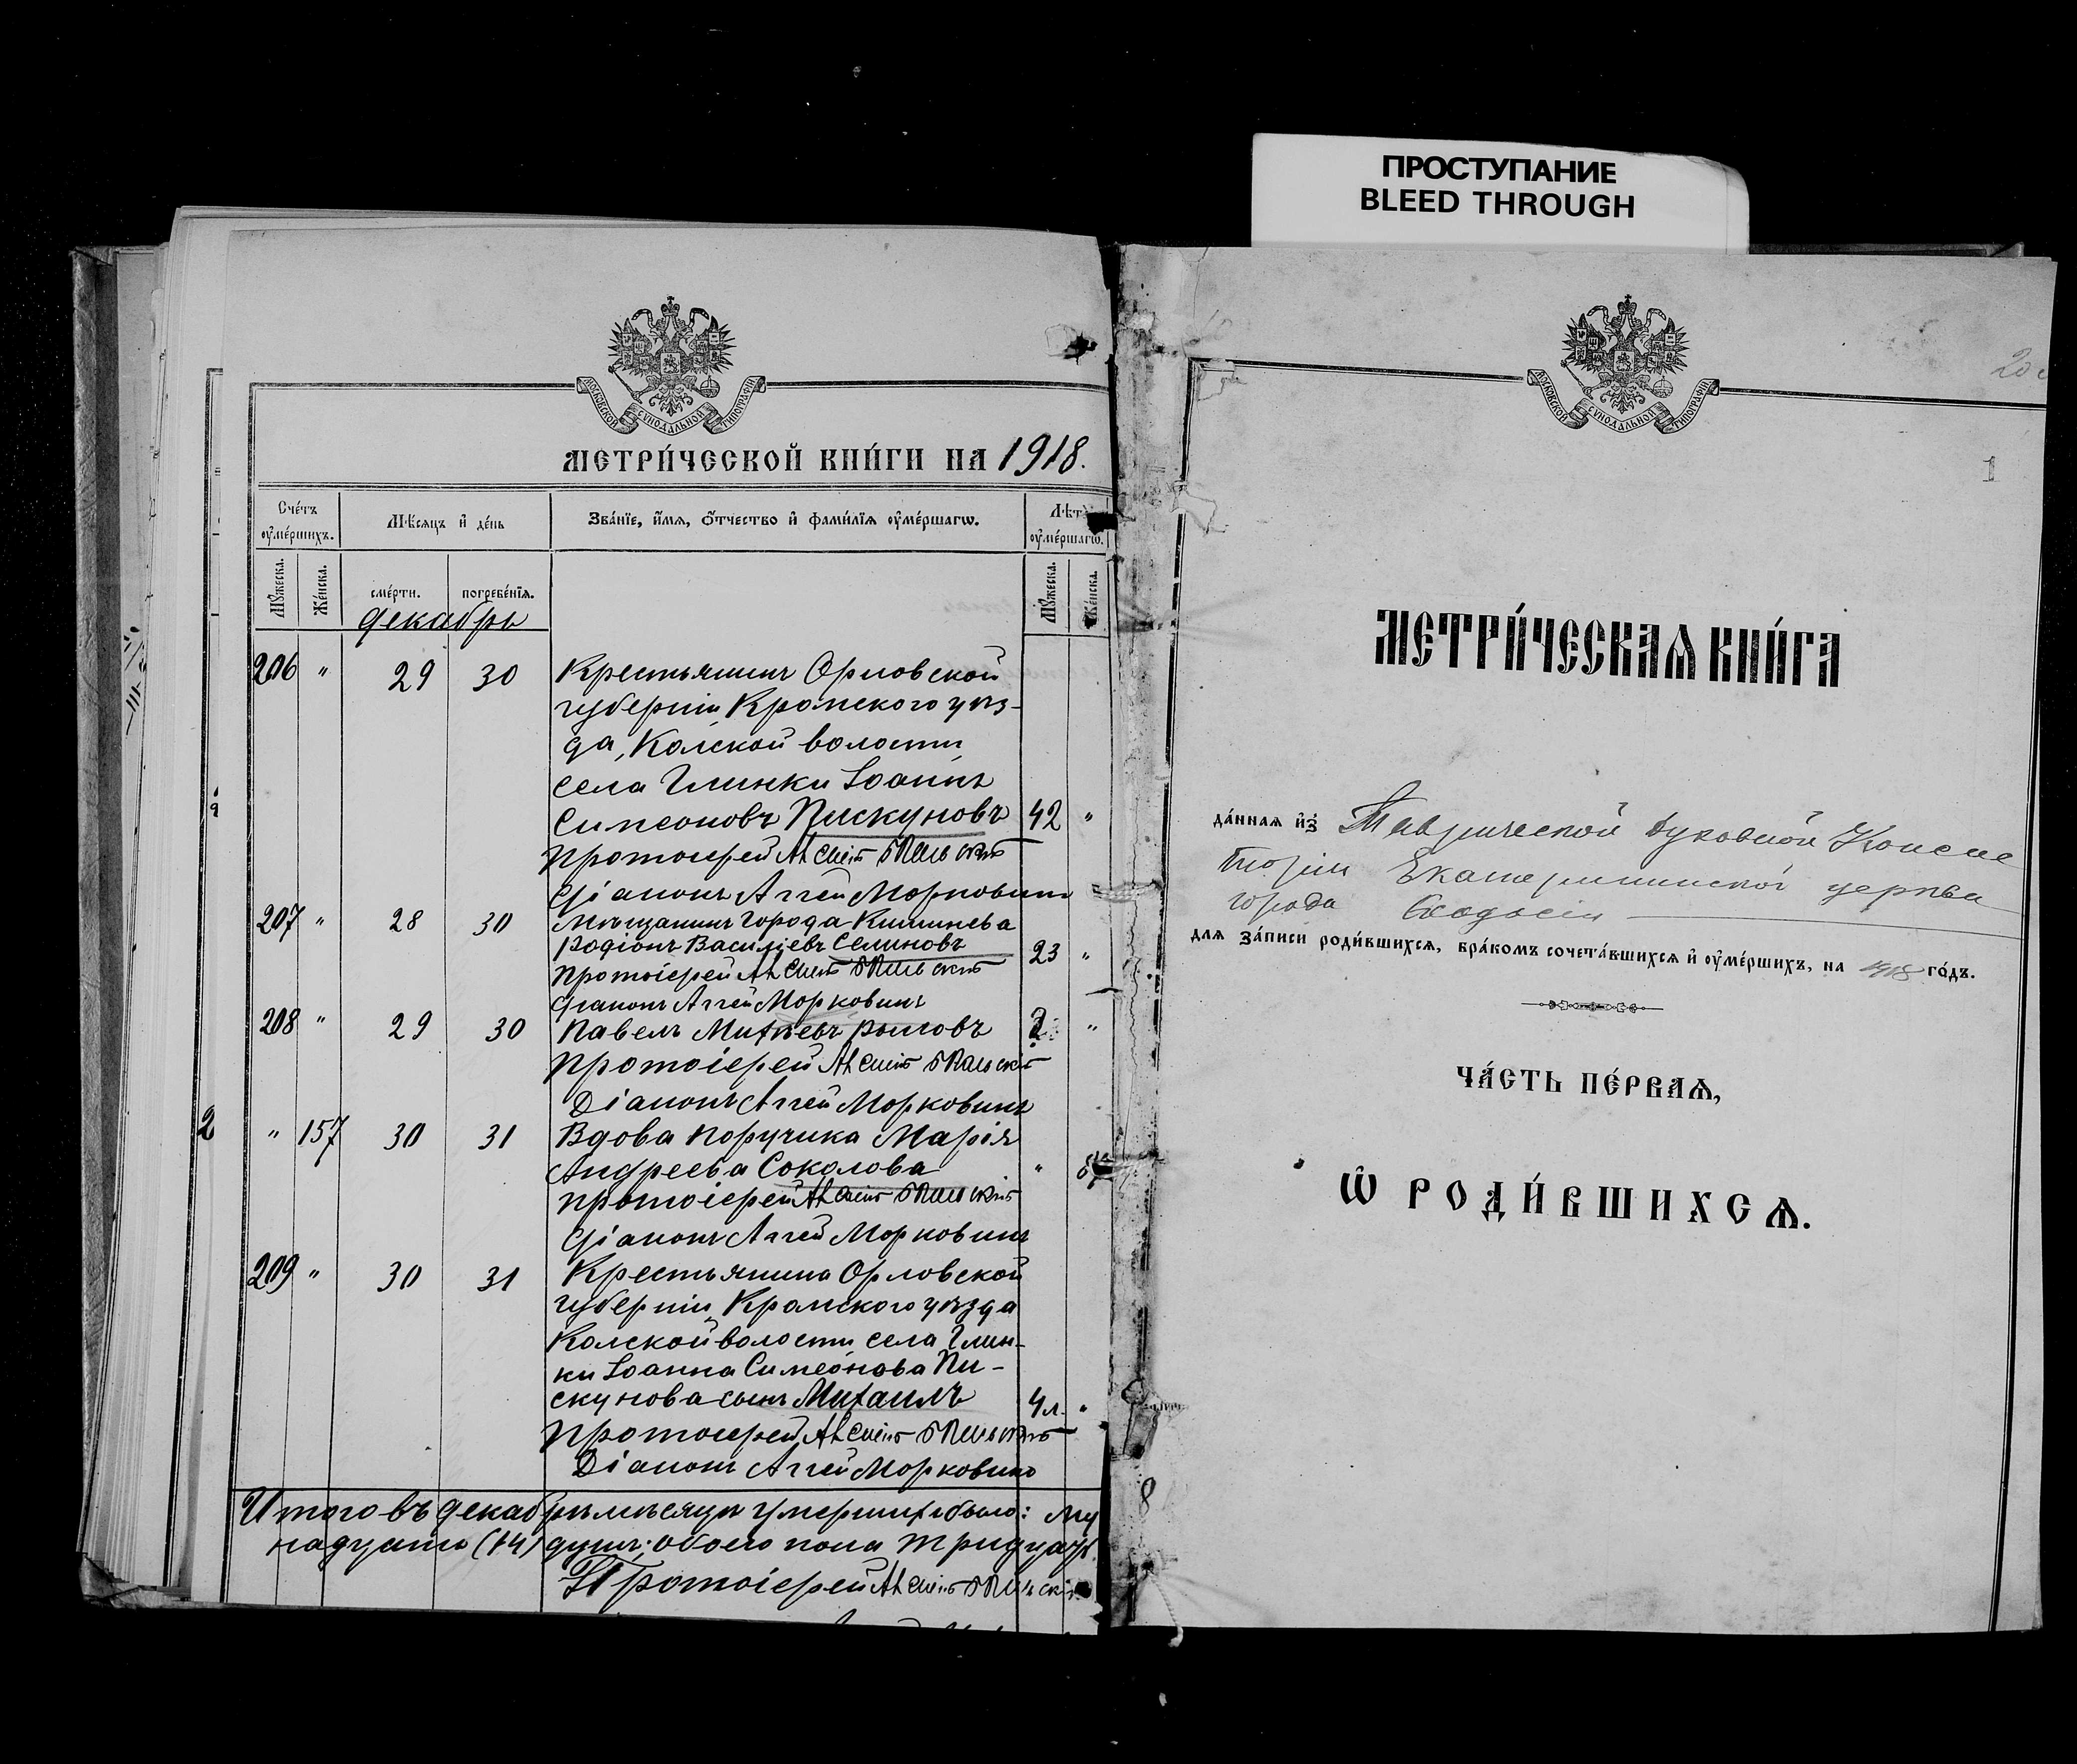 ПРОСТУПАНИЕ
BLEED THROUGH
МОСКОВСКОЙ СѴНОДАЛЬНОЙ ТИПОГРАФІИ
МЕТРИ́ЧЕСКОЙ КНИ́ГИ НА 1918.
Сче́тъ оу҆ме́ршихъ.
Мѣ́сяцъ и҆ де́нь
Зва́нїе, и҆́мѧ, ѻ҆́тчество и҆ фами́лїѧ оу҆ме́ршагѡ.
Лѣт оу҆ме́ршагѡ.
Мꙋ́жеска.
Же́нска.
сме́рти.
погребе́нїѧ.
Мꙋ́жеска.
Же́нска.
декабрь
206 " 29 30 Крестьянинъ Орловской
губерніи Кромского уѣз-
да, Колской волости
села Глинки Іоаннъ
Симеоновъ Пискуновъ 42 "
Протоіерей
Діаконъ Аггей Морковинъ
207 " 28 30 Мѣщанинъ города Кишинева
Родіонъ Василіевъ Семиновъ 23 "
Протоіерей
Діаконъ Аггей Морковинъ
208 " 29 30 Павелъ "
Протоіерей
Діаконъ Аггей Морковинъ
2
" 157 30 31 Вдова поручика Марія
Андреева Соколова "
протоіерей
Діаконъ Аггей Морковинъ
209 " 30 31 Крестьянина Орловской
губерніи, Кромского уѣзда
Колской волости села Глин-
ки Іоанна Симеонова Пи-
скунова сынъ Михаилъ 4 л. "
Протоіерей
Діаконъ Аггей Морковинъ
Итого въ декабрѣ мѣсяцѣ умершихъ было: му
надцать (14) душъ; обоего пола тридцать
Протоіерей
МОСКОВСКОЙ СѴНОДАЛЬНОЙ ТИПОГРАФІИ
1
МЕТРИ́ЧЕСКАѦ КНИ́ГА
да́ннаѧ и҆з̾ Таврической Духовной Консис
торіи Екатерининской церкви
города Ѳеодосіи
длѧ за́писи роди́вшихсѧ, бра́комъ сочета́вшихсѧ и҆ оу҆ме́ршихъ, на 1918 го́дъ.
ЧА́СТЬ ПЕ́РВАѦ,
Ѡ҆ РОДИ́ВШИХСѦ.
8